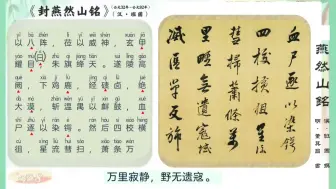 《封燕然山铭》
(公元32年-公元92年)
(汉·班固)
以八阵,莅以威神,玄甲
耀日,朱旗绛天。遂陵高
阙,下鸡鹿,经碛卤,绝
大漠,斩温禺以衅鼓,血
尸逐以染锷。然后四校横
徂,星流彗扫,萧条万
血尸逐以染鍔
四校橫徂星流
彗掃蕭條萬
里野無遺寇
滅區單反旆
燕然山銘
万里寂静,野无遗寇。